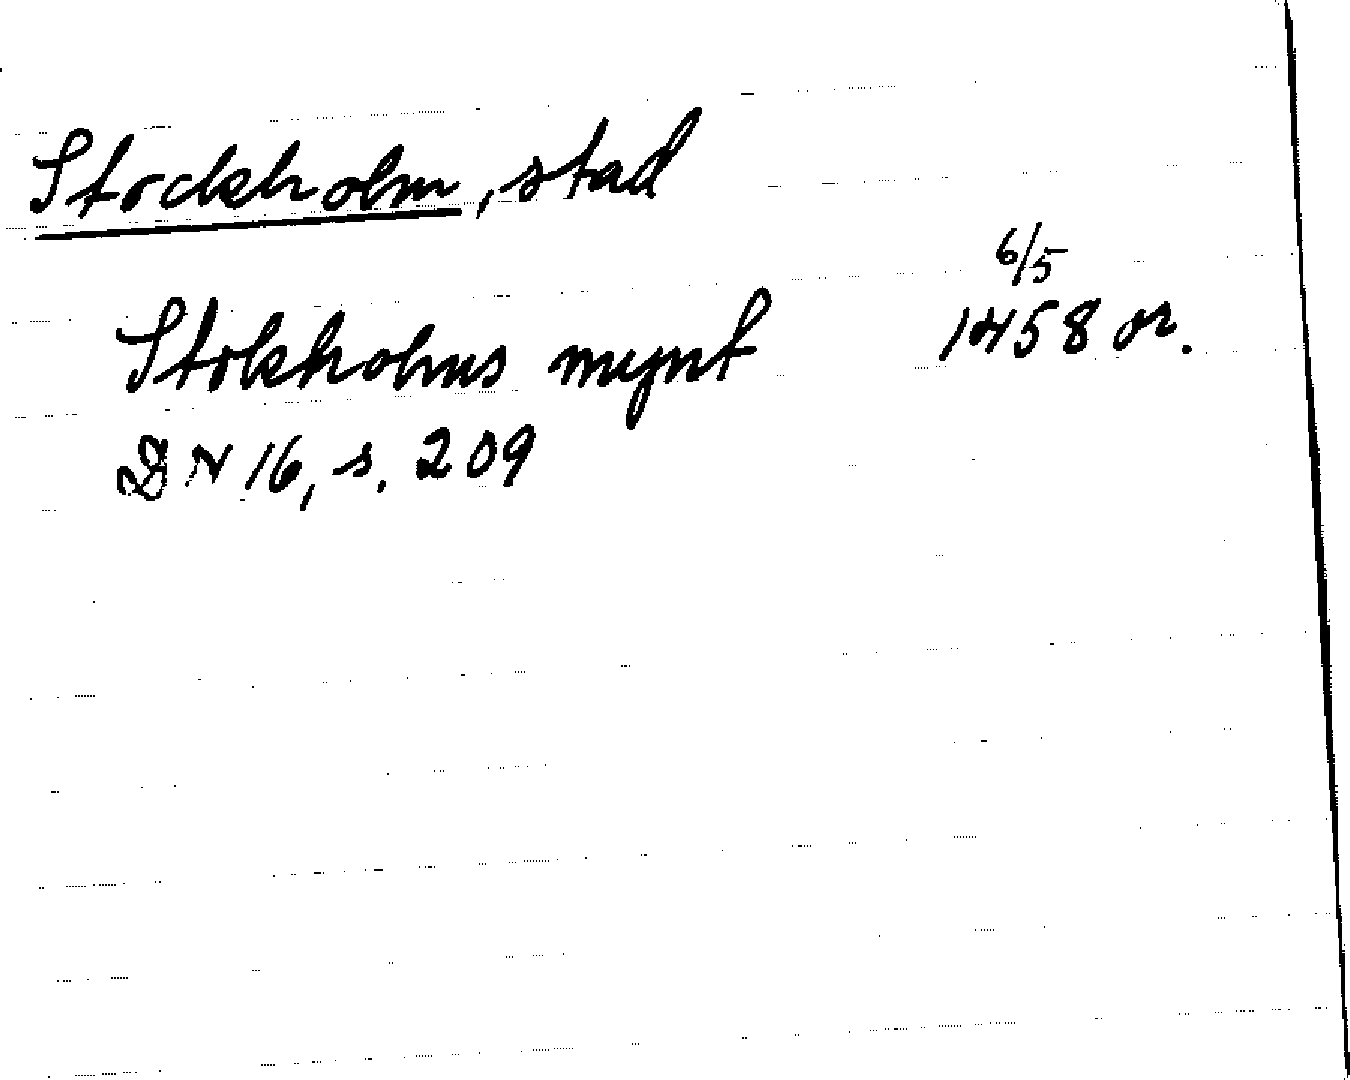 Stockholm, stad
6/5
Stokholms mynt 1458 or.
DN 16, s. 209